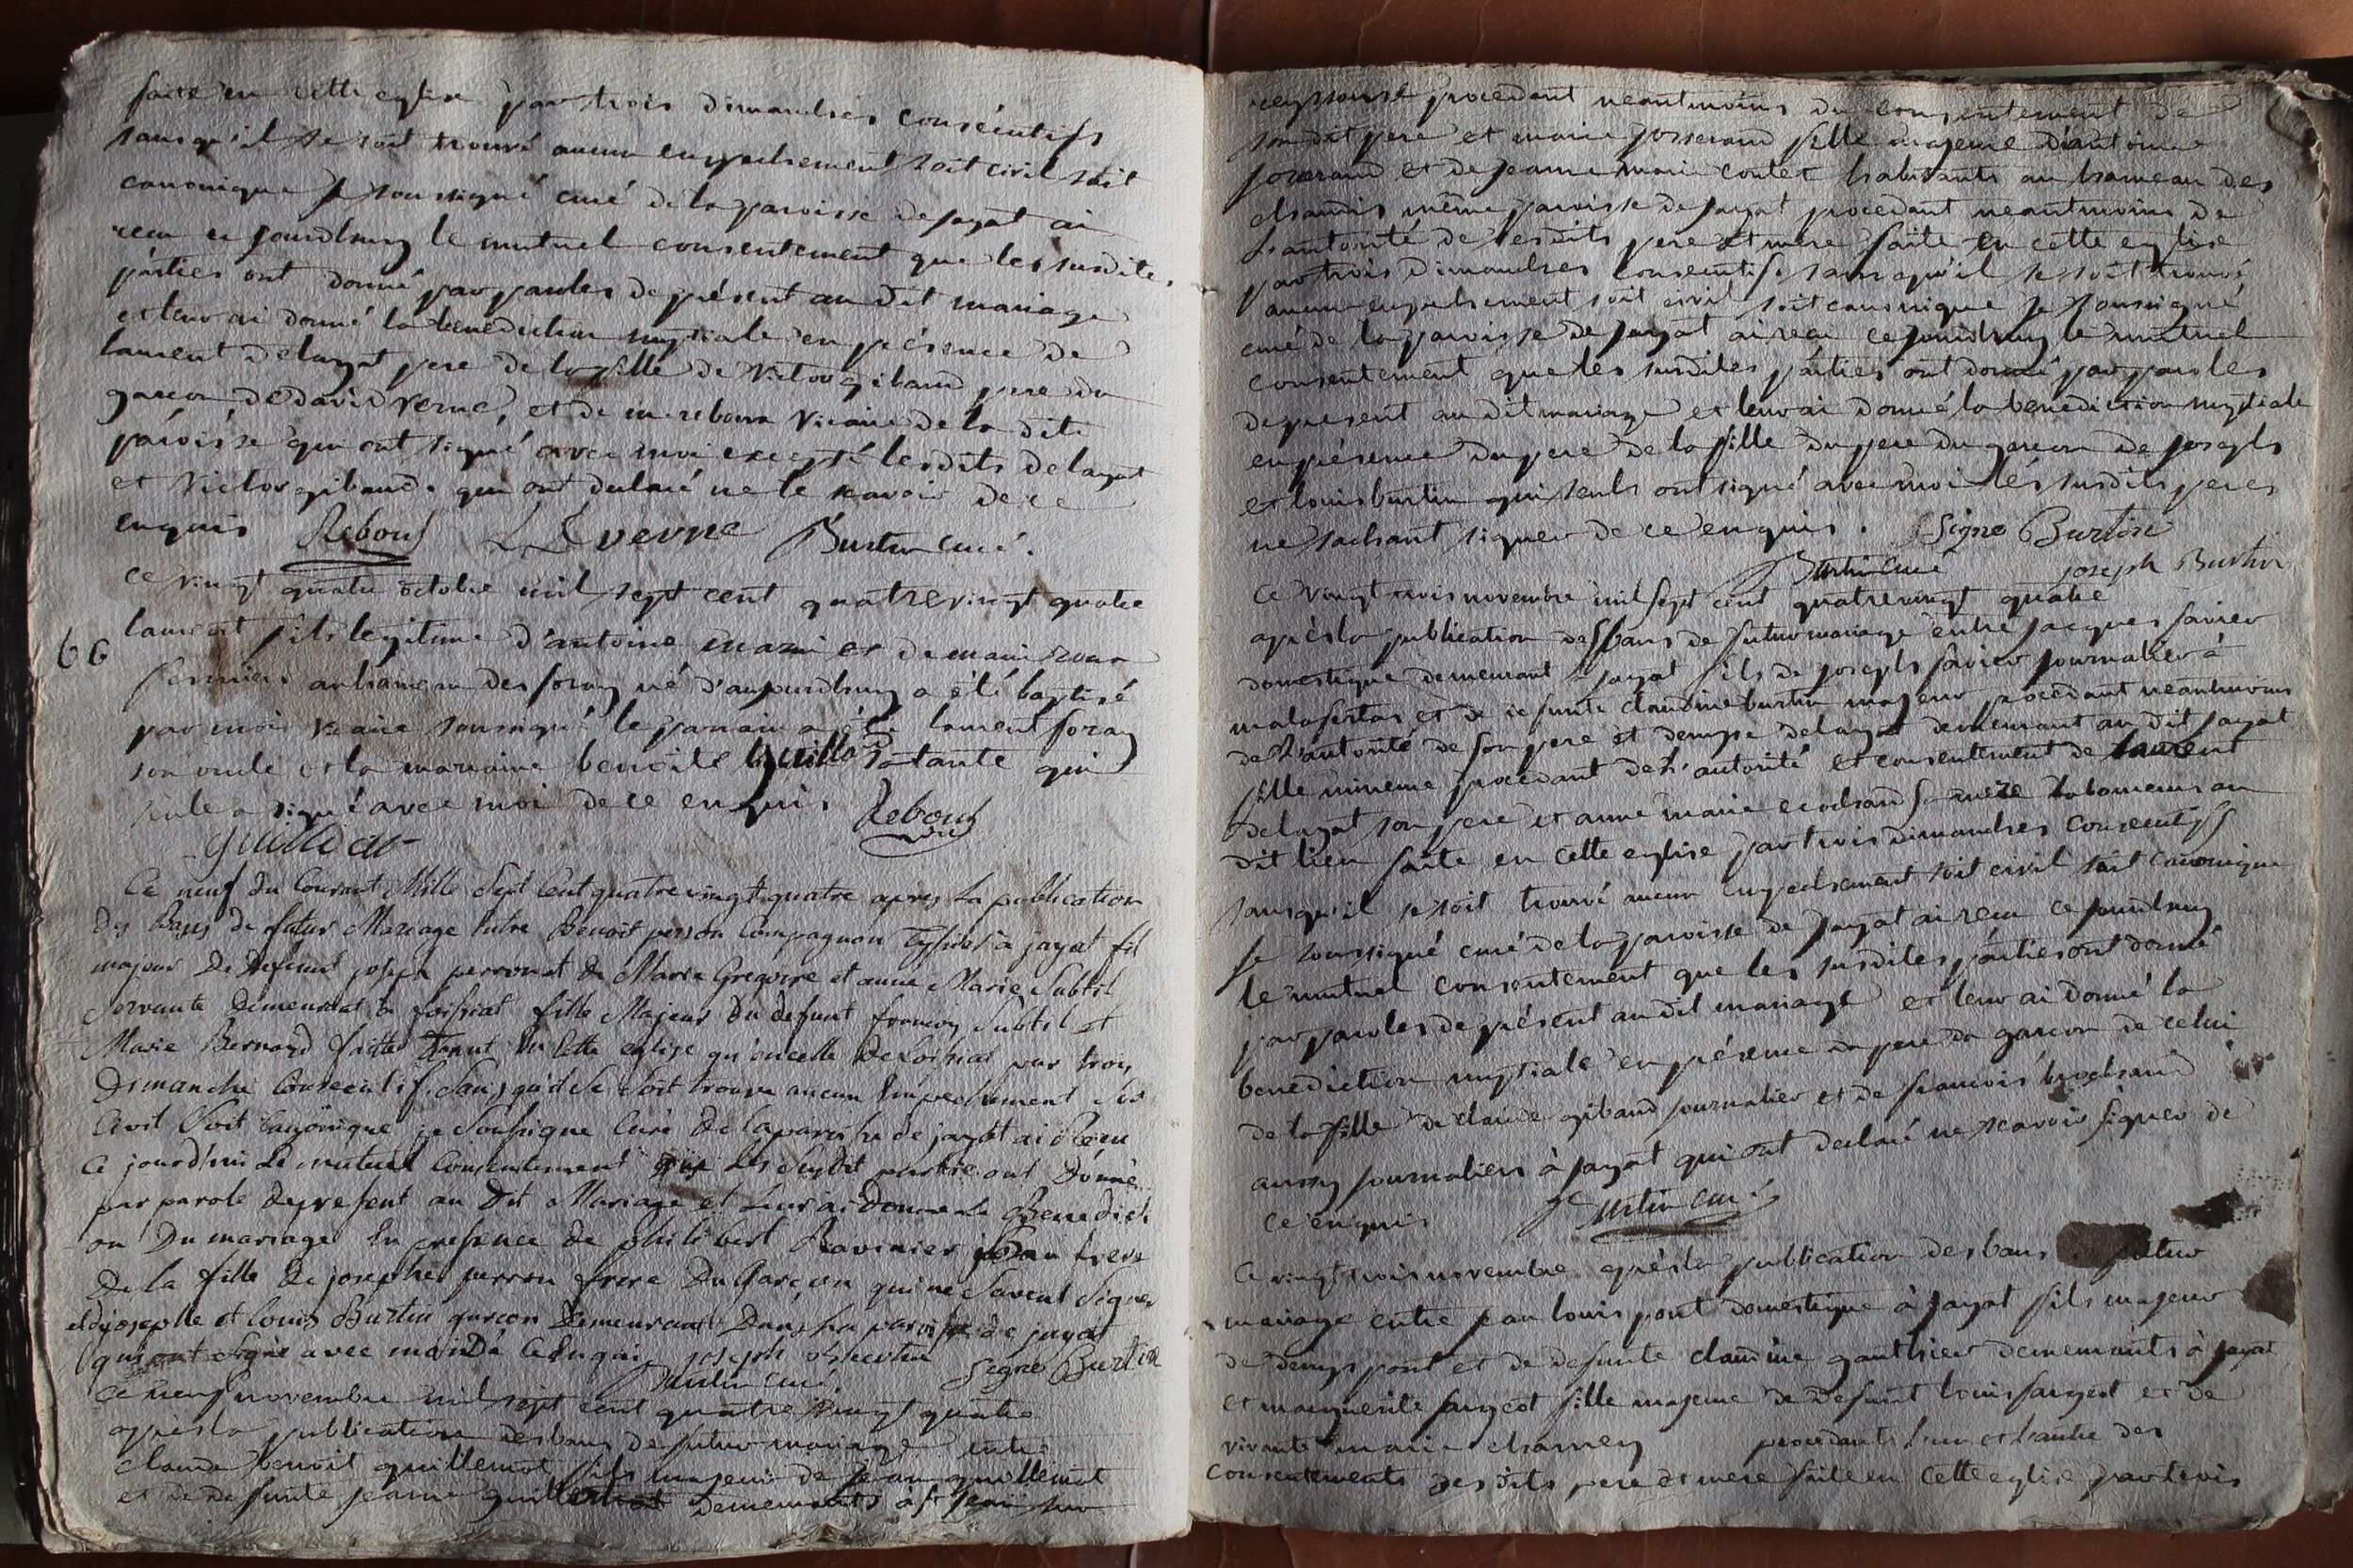 faite en cette eglise par trois dimanches consécutifs
sans qu'il se soit trouvé aucun empechement soit civil soit
canonique je soussigné curé de la paroisse de jayat ai
recu ce jourdhuy le mutuel consentement que les susdites
parties ont donné par paroles de présent au dit mariage
et leur ai donné la benediction nuptiale en présence de
laurent delayat pere de la fille de victor gibaud pere du
garcon de david verne, et de m. rebour vicaire de la dite
paroisse qui ont signé avec moi excepté lesdits delayat
et victor gibaud qui ont declaré ne le scavoir de ce
enquis Rebour verne Burtin curé.
ce vingt quatre octobre mil sept cent quatrevingt quatre
66
laurent fils legitime d'antoine et de marie
au hameau des foray né d'aujourdhuy a été baptisé
par moi vicaire soussigné le parrain a été laurent foray
son oncle et la marraine benoite guillot sa tante qui
seule a signé avec moi de ce enquis Rebour
Ce neuf du Courant Mille Sept Cent quatre vingt quatre apres la publication
Des Bans de futur Mariage Entre Benoit perron Compagnon a jayat fil
majeur De defunt joseph perron et de Marie Gregoire et anne Marie Subtil
Servante demeurant a foissiat fille Majeur Du defunt francoy Subtil et
Marie Bernard faitte tant En Cette eglise qu'en celle de foissiat par trois
Dimanche Consecutif Sans qu'il Se Soit trouve aucun Empechement Soit
Civil Soit Canonique je Soussigne Curé De la paroisse de jayat ai Recu
Ce jourd'hui Le mutuel Consentement que Les Susdit partie ont Donné
par parole De present au Dit Mariage et Leur ai Donne La Benedicti
on Du mariage En presence de philibert Ravinier frere
De la fille De josephe perron frere Du Garçon qui ne Savent Signer
et de josephe et Louis Burtin garcon Demeurant Dans La paroisse de jayat
qui ont Signè avec moi De Ce Enqui joseph burtin Signe Burtin
Burtin curé
ce neuf novembre mil sept cent quatre vingt quatre
après la publication des bans de futur mariage entre
claude benoit guillemot fils majeur de jean guillemot
et de defunte jeanne demeurants à st jean sur
reyssouse procedant neantmoins du consentement de
son dit pere et marie josserand fille majeure d'antoine
joserand et de jeanne marie contet habitants au hameau des
même paroisse de jayat procedant neantmoins de
l'autorité de sesdits pere et mere faite en cette eglise
par trois dimanches consecutifs sans qu'il se soit trouvé
aucun empechement soit civil soit canonique je soussigné
curé de la paroisse de jayat ai recu ce jourdhuy le mutuel
consentement que les susdites parties ont donné par paroles
de present au dit mariage et leur ai donné la benediction nuptiale
en présence du pere de la fille du pere du garcon de joseph
et louis burtin qui seuls ont signé avec moi les susdits peres
ne sachant signer de ce enquis. Signe Burtin
Burtin curé joseph Burtin
ce vingt trois novembre mil sept cent quatrevingt quatre
après la publication des bans de futur mariage entre jacques favier
domestique demeurant a jayat fils de joseph favier journalier à
malafretas et de defunte claudine burtin majeur procedant neantmoins
de l'autorité de son pere et denyse delayat demeurant au dit jayat
fille mineure procedant de l'autorité et consentement de laurent
delayat son pere et anne marie ecochard sa mere laboureurs au
dit lieu faite en cette eglise par trois dimanches consecutifs
sans qu'il se soit trouvé aucun empechement soit civil soit canonique
je soussigné curé de la paroisse de jayat ai recu ce jourdhuy
le mutuel consentement que les susdites parties ont donné
par paroles de présent au dit mariage et leur ai donné la
benediction nuptiale en présence du pere du garcon de celui
de la fille de claude gibaud journalier et de francois brochand
aussy journaliers à jayat qui ont declaré ne scavoir signer de
ce enquis Burtin curé
ce vingt trois novembre après la publication des bans futur
mariage entre jean louis pont domestique à jayat fils majeur
de denys pont et de defunte claudine gauthier demeurants à jayat
et marguerite fargeot fille majeure de defunt louis fargeot et de
vivante marie charney procedants l'un et l'autre des
consentements desdits pere et mere faite en cette eglise par trois